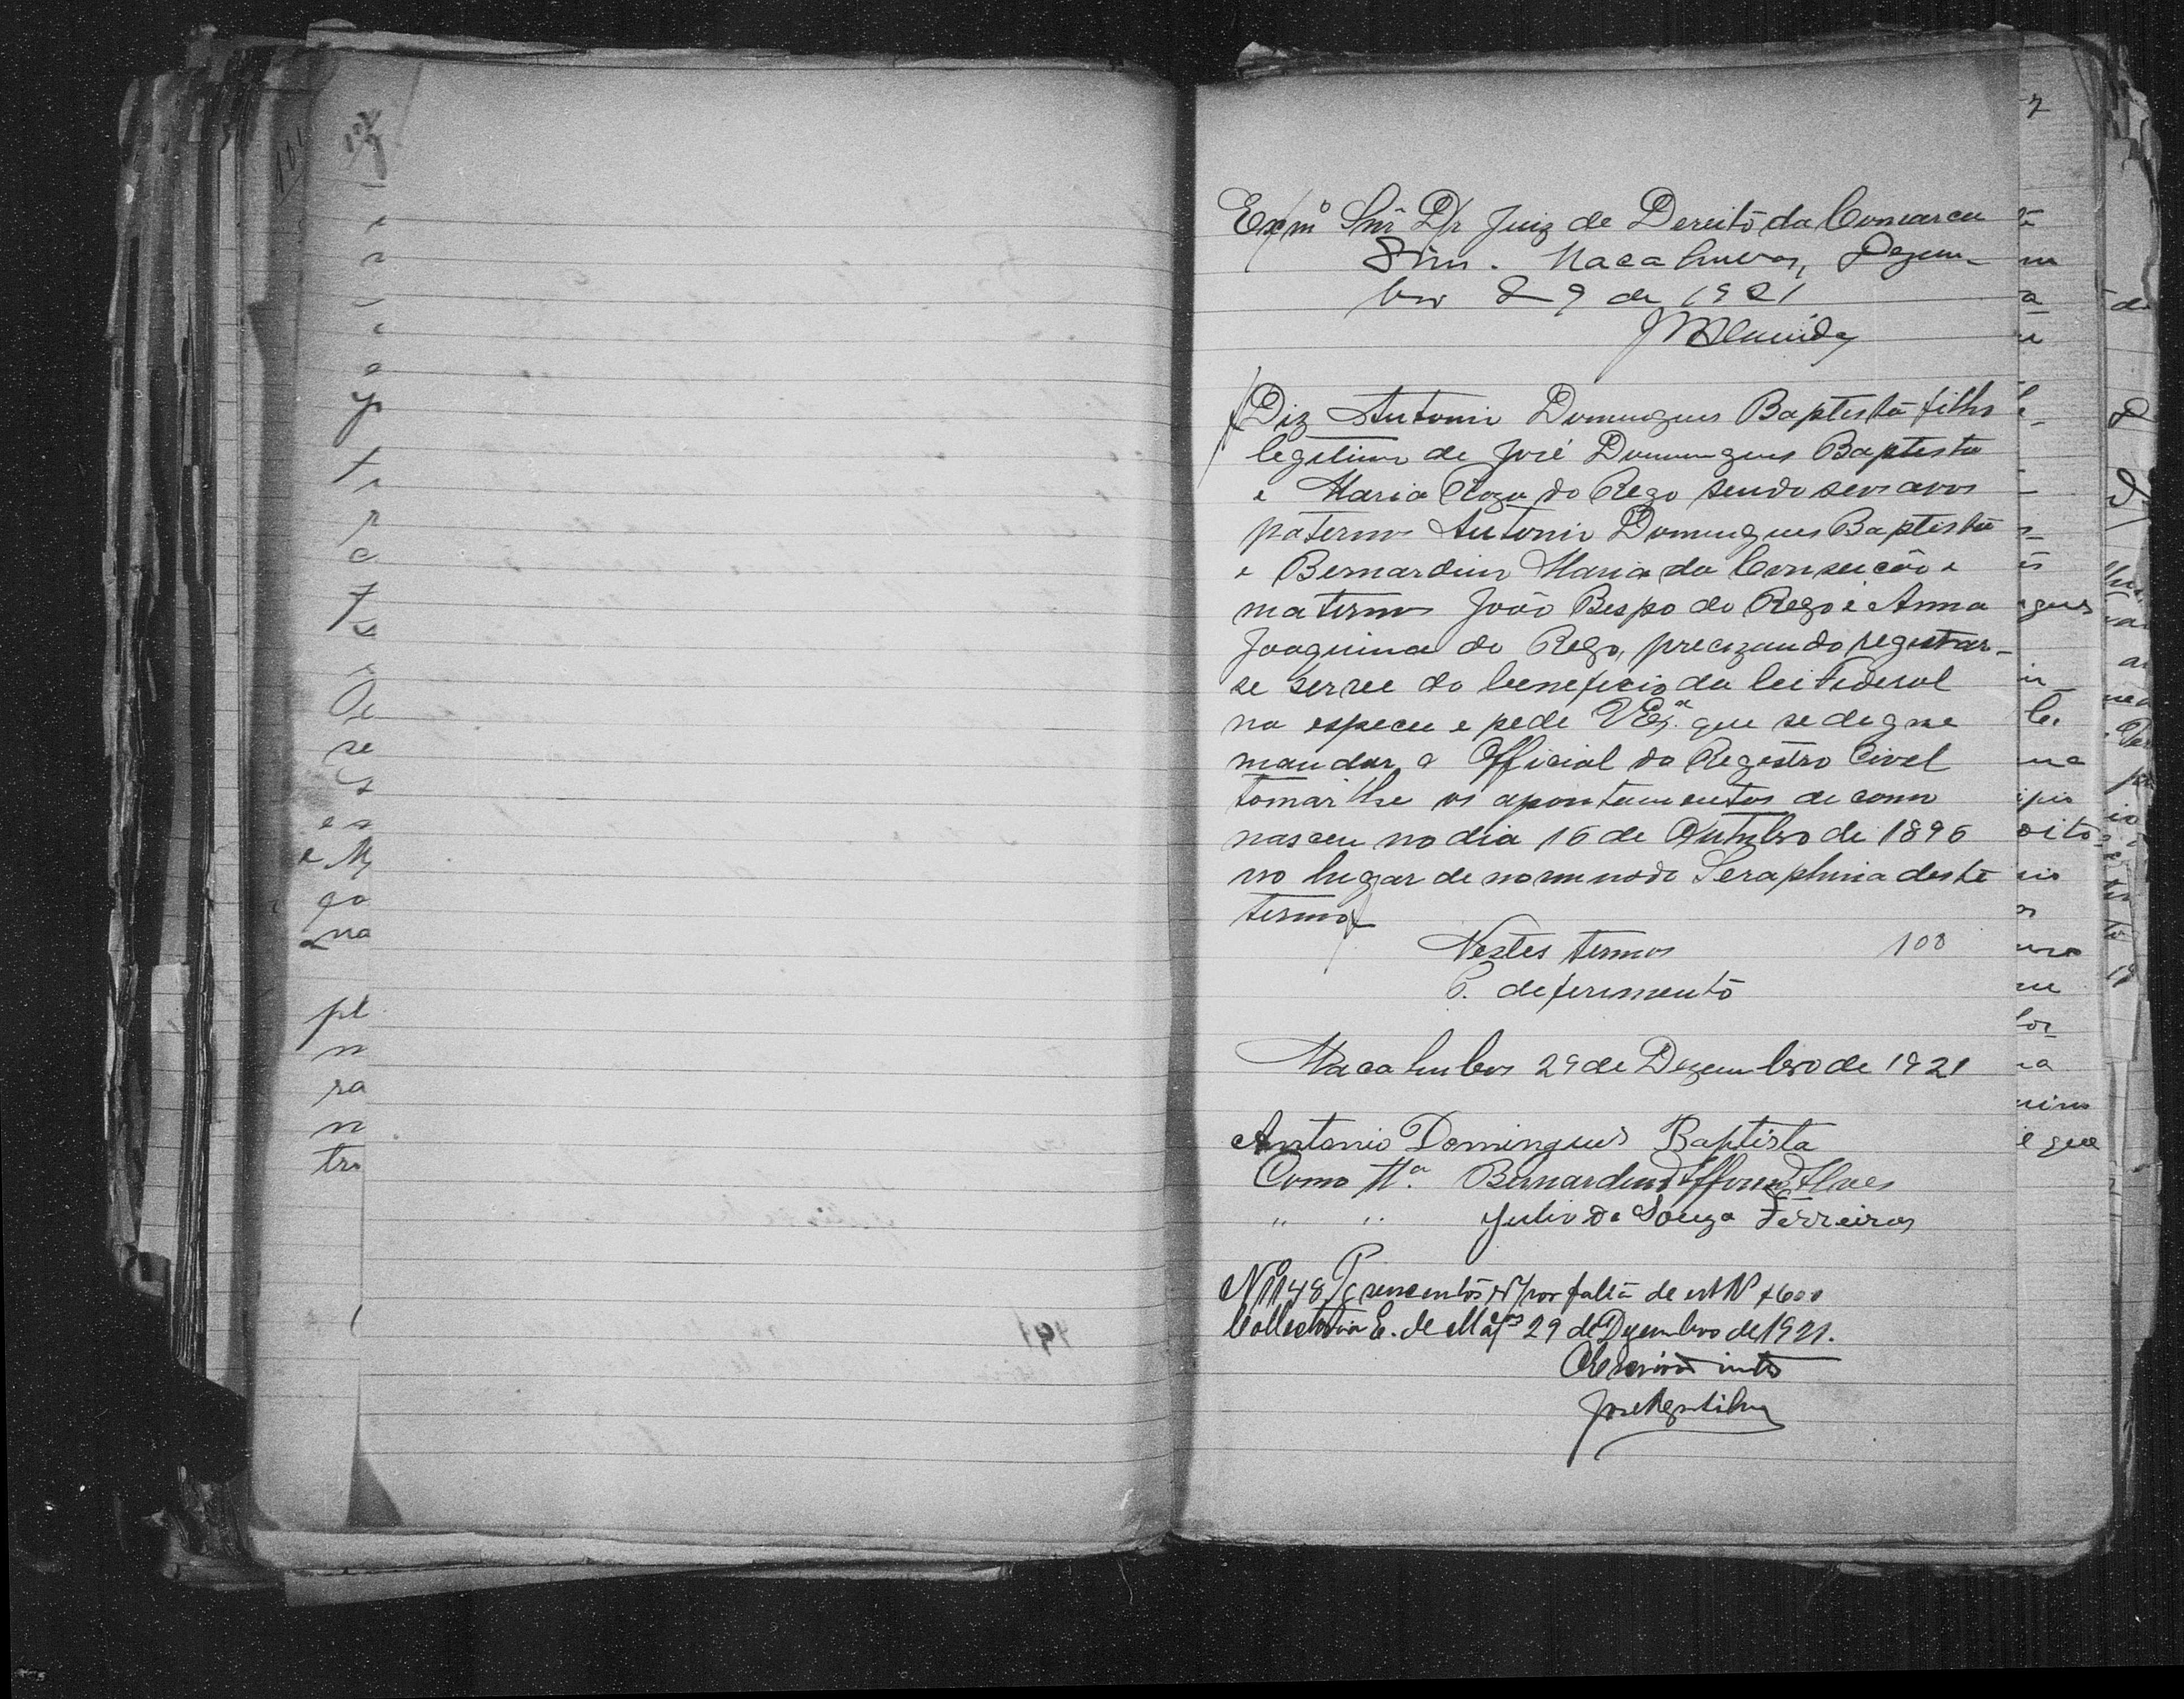 Exmº Snr Dr Juiz de Dereito da Comarca
Sim. Macahubas, Dezem-
bro 29 de 1921
JMAlmeida
Diz Antonio Domingues Baptista filho
legitimo de José Domingues Baptista
e Maria Roza do Rego sendo seos avos
paternos Antonio Domingues Baptista
e Bernardina Maria da Conseicão e
maternos João Bispo do Rego e Anna
Joaquina do Rego, precizando registrar-
se serve do beneficio da lei Federal
na especie e pede VExª. que se digne
mandar o Official do Registro Civel
tomar lhe os apontamentos de como
nasceu no dia 16 de Outubro de 1896
no lugar denominado Seraphina deste
termo
Nestes termos 108
P. deferimento
Macahubas 29 de Dezembro de 1921
Antonio Domingues Baptista
Como Tª. Bernardino Affonso Alves
" " Julio de Souza Ferreira
Nº 1148 Pg seiscentos rs por falta de est Nº $600
Collectoria E. de Macas 29 de Dezembro de 1921.
O Escrivão into